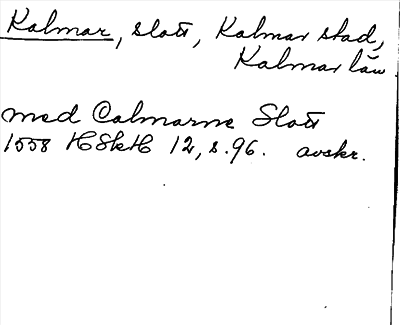 Kalmar, slott, Kalmar stad,
Kalmar län
med Calmarne Slott
1558 HSkH 12, s. 96. avskr.